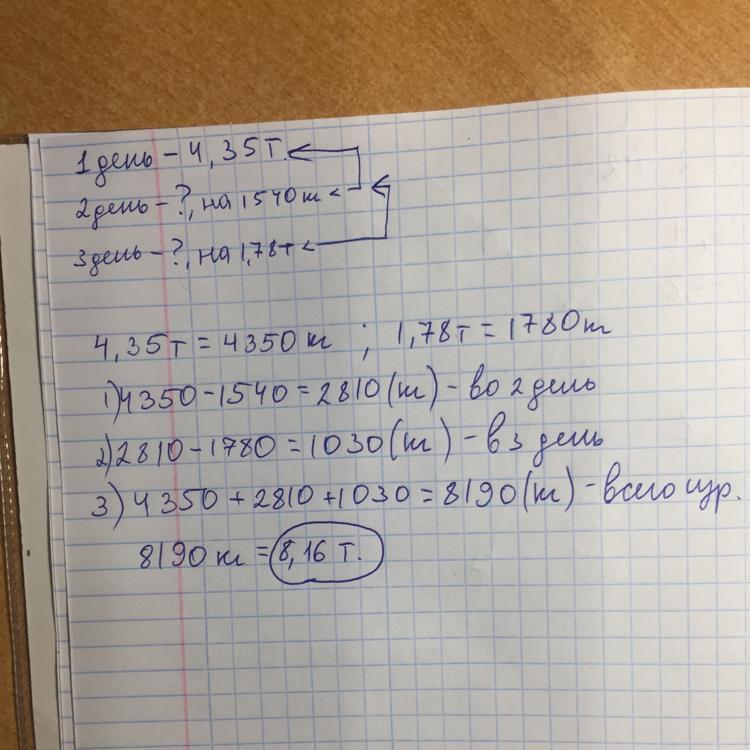 1 день – 4,35 т.
2 день – ?, на 1540 кг <
3 день – ?, на 1,78 т <
4,35 т = 4350 кг ; 1,78 т = 1780 кг
1) 4350 – 1540 = 2810 (кг) – во 2 день
2) 2810 – 1780 = 1030 (кг) – в 3 день
3) 4350 + 2810 + 1030 = 8190 (кг) – всего изр.
8190 кг = 8,16 т.